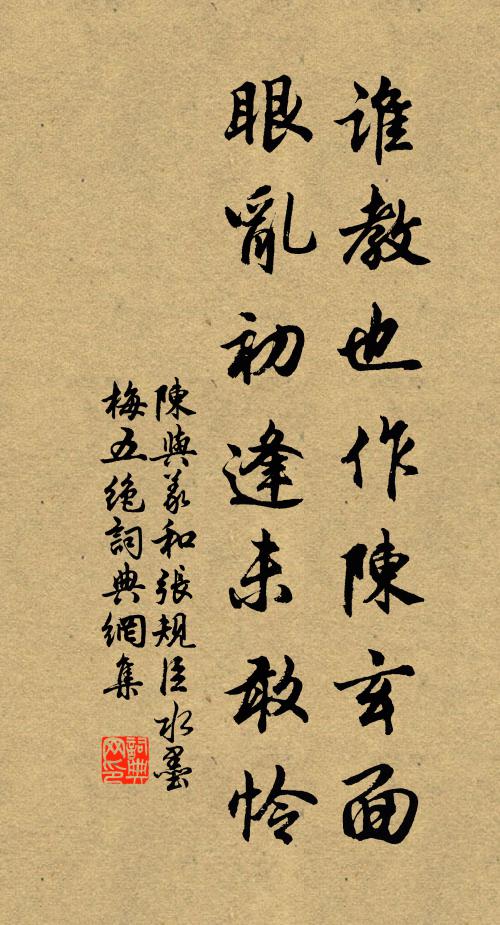 誰教也作陳玄面
眼亂初逢未敢憐
陳與義和張規臣水墨
梅五絶詞典網集
詞典
网印